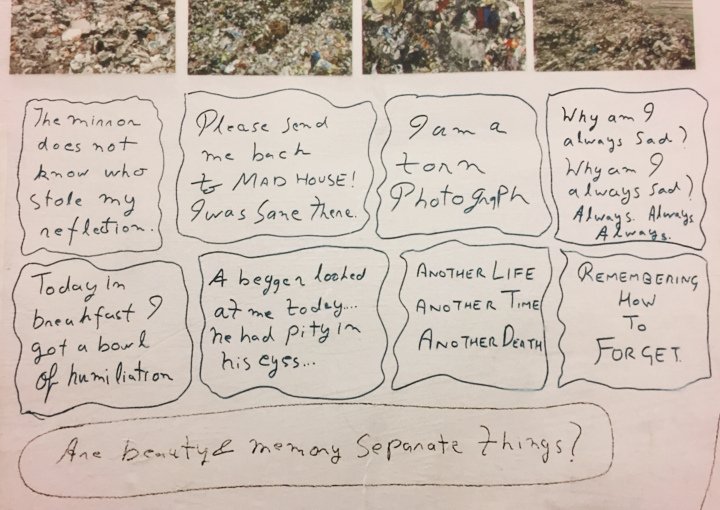 The mirror
does not
know who
stole my
reflection.
Please send
me back
to MAD HOUSE!
I was Sane There.
I am a
torn
Photograph
Why am I
always sad?
Why am I
always sad?
Always. Always
Always.
Today In
breakfast I
got a bowl
of humiliation
A beggar looked
at me today....
he had pity in
his eyes...
ANOTHER LIFE
ANOTHER TIME
ANOTHER DEATH
REMEMBERING
HOW
TO
FORGET.
Are beauty & memory Separate things?